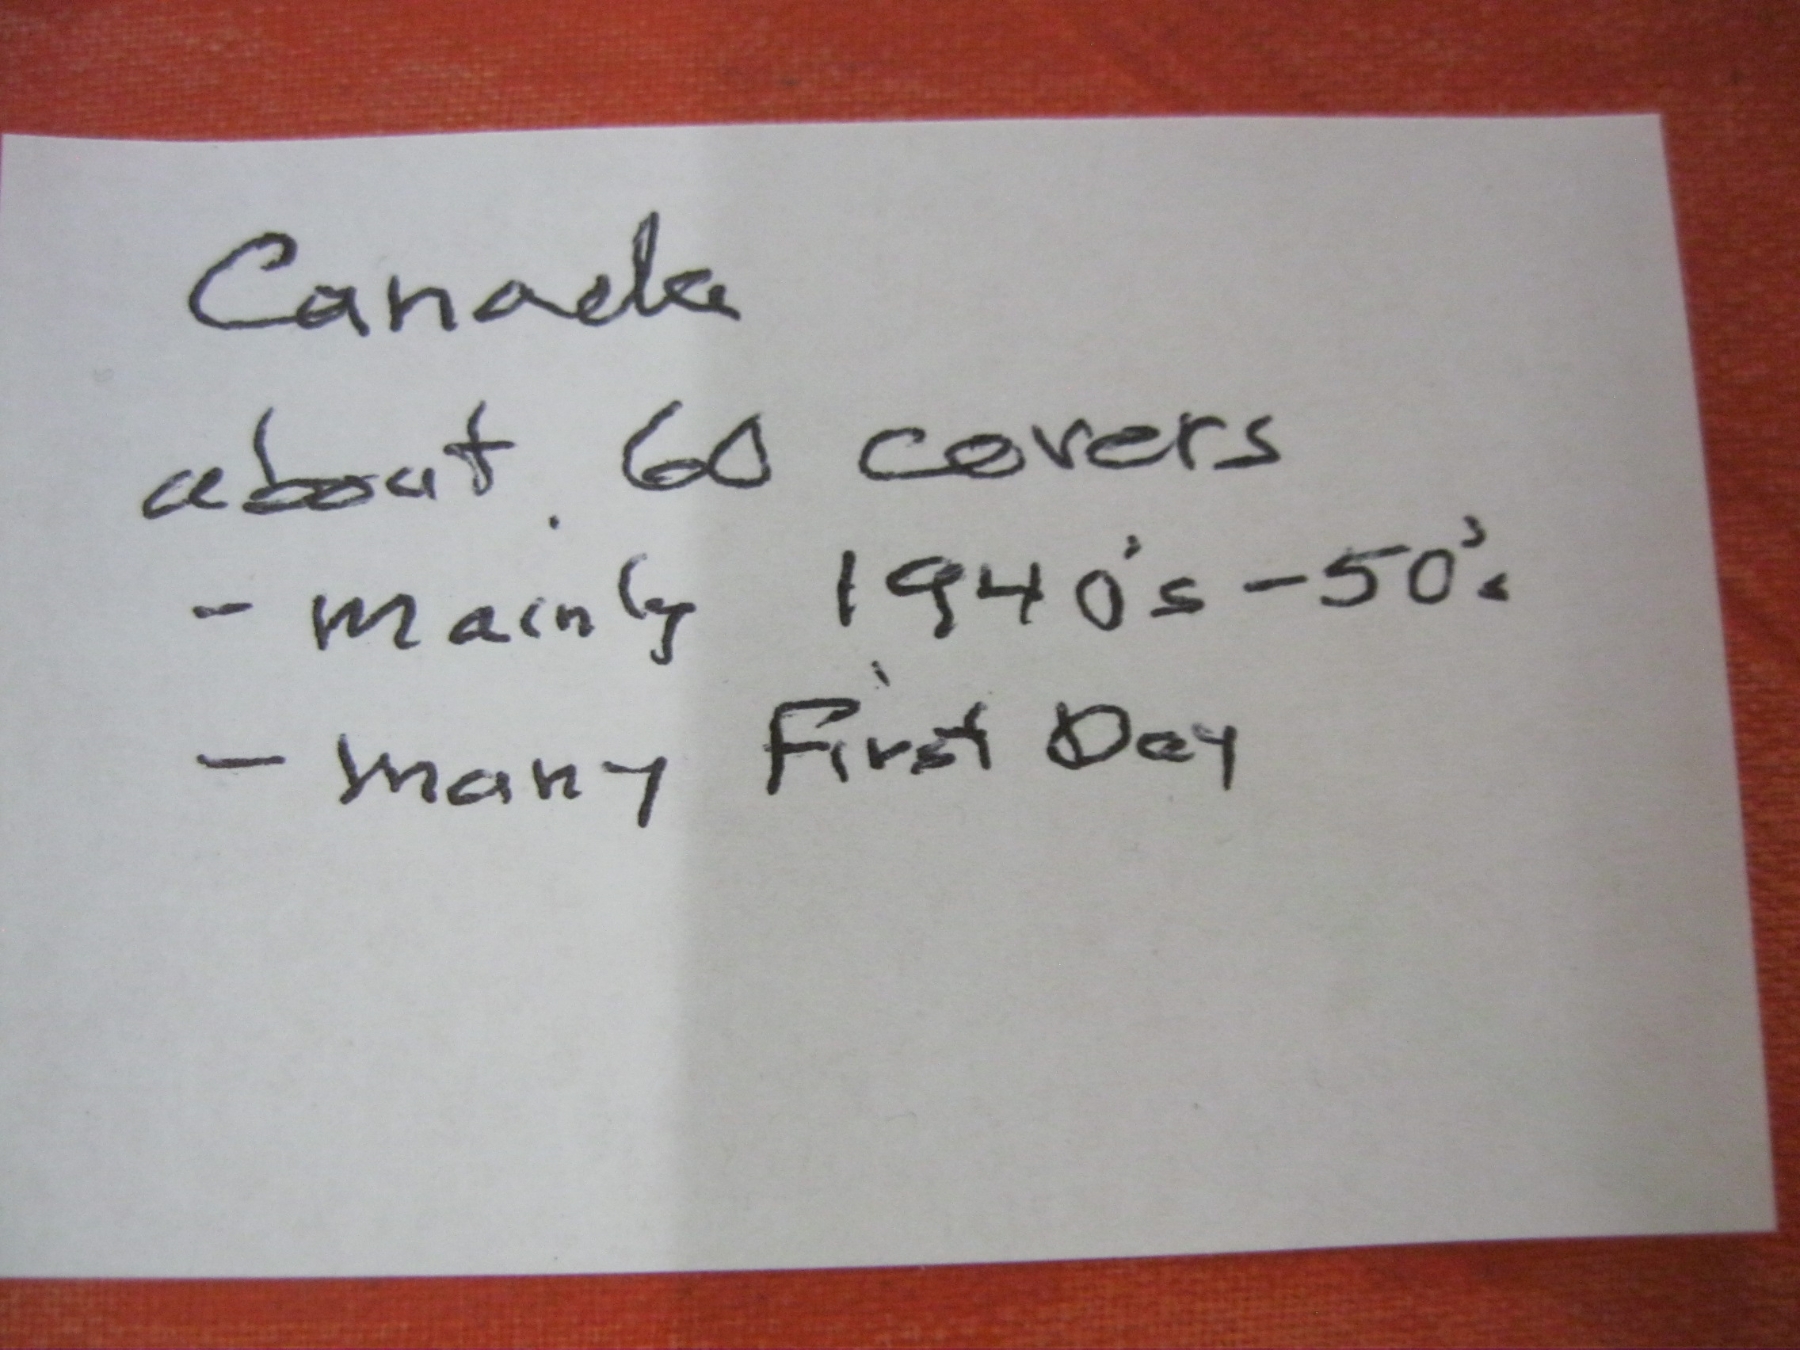 Canada
about 60 covers
- mainly 1940's - 50's
- many First Day